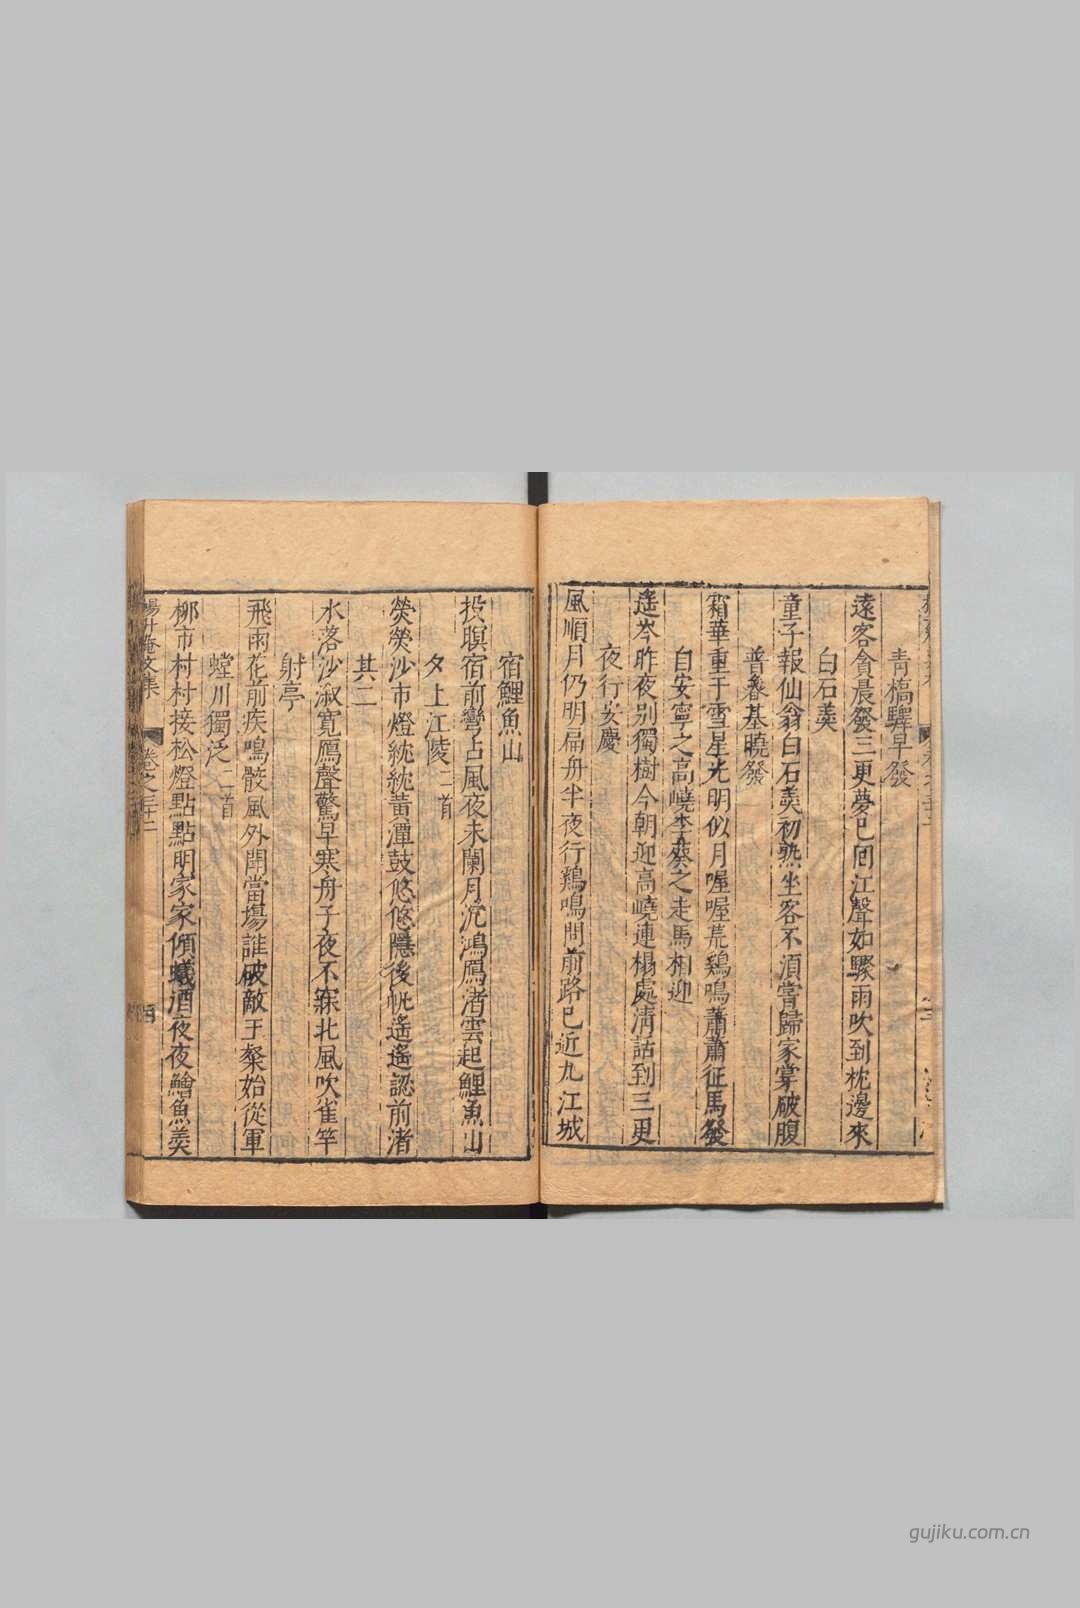 青橋驛早發
遠客會晨發三更夢已囘江聲如驟雨吹到枕邊來
白石羮
童子報仙翁白石羮初熟坐客不湏嘗歸家掌破腹
普𣈶基曉發
霜華重于雪星光明似月喔喔荒鷄鳴蕭蕭征馬發
自安寧之高嶢李葵之走馬相迎
遥岑昨夜别獨樹今朝迎高嶢連榻處清話到三更
夜行安慶
風順月仍明扁舟半夜行鷄鳴問前路已近九江城
宿鯉魚山
投瞑宿前彎占風夜未闌月沉鴻鴈渚雲起鯉魚山
夕上江陵二首
熒熒沙市燈紞紞黄潭鼓悠悠隱後帆遥遥認前渚
其二
水落沙溆寛鴈聲驚早寒舟子夜不寐北風吹雀竿
射亭
飛雨花前疾鳴骹風外聞當場誰破敵王粲始從軍
螳川獨泛二首
柳市村村接松燈點點明家家傾蟻酒夜夜鱠魚羮
楊升菴文集 卷之三十二